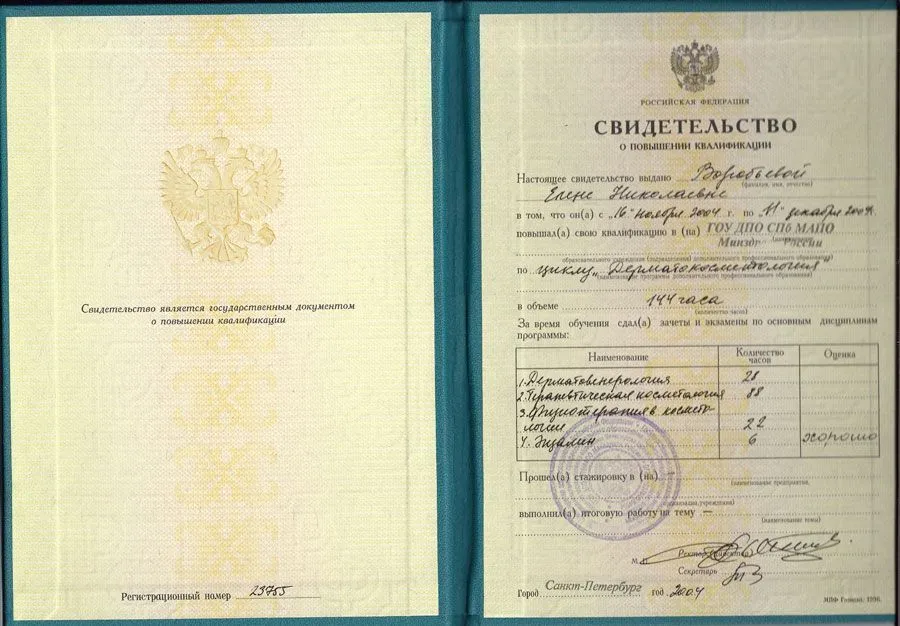 Свидетельство является государственным документом
о повышении квалификации
Регистрационный номер 23755
РОССИЙСКАЯ ФЕДЕРАЦИЯ
СВИДЕТЕЛЬСТВО
О ПОВЫШЕНИИ КВАЛИФИКАЦИИ
Настоящее свидетельство выдано Воробьевой
(фамилия, имя, отчество)
Елене Николаевне
в том, что он(а) с „16" ноября 2004 г. по „11" декабря 2004г.
повышал(а) свою квалификацию в (на) ГОУ ДПО СПб МАПО
Минздрава России
образовательного учреждения (подразделения) дополнительного профессионального образования)
по циклу „Дерматокосметология"
(наименование программы дополнительного профессионального образования)
в объеме 144 часа
(количество часов)
За время обучения сдал(а) зачеты и экзамены по основным дисциплинам
программы:
Наименование Количество часов Оценка
1. Дерматовенерология 28
2. Терапевтическая косметология 88
3. Физиотерапия в космето-
логии 22
4. Экзамен 6 хорошо
Прошел(а) стажировку в (на) —
(наименование предприятия,
организации, учреждения)
выполнил(а) итоговую работу на тему —
(наименование темы)
М.П. Ректор (директор)
Секретарь
Город Санкт-Петербург год 2004
МПФ Гознака. 1996.